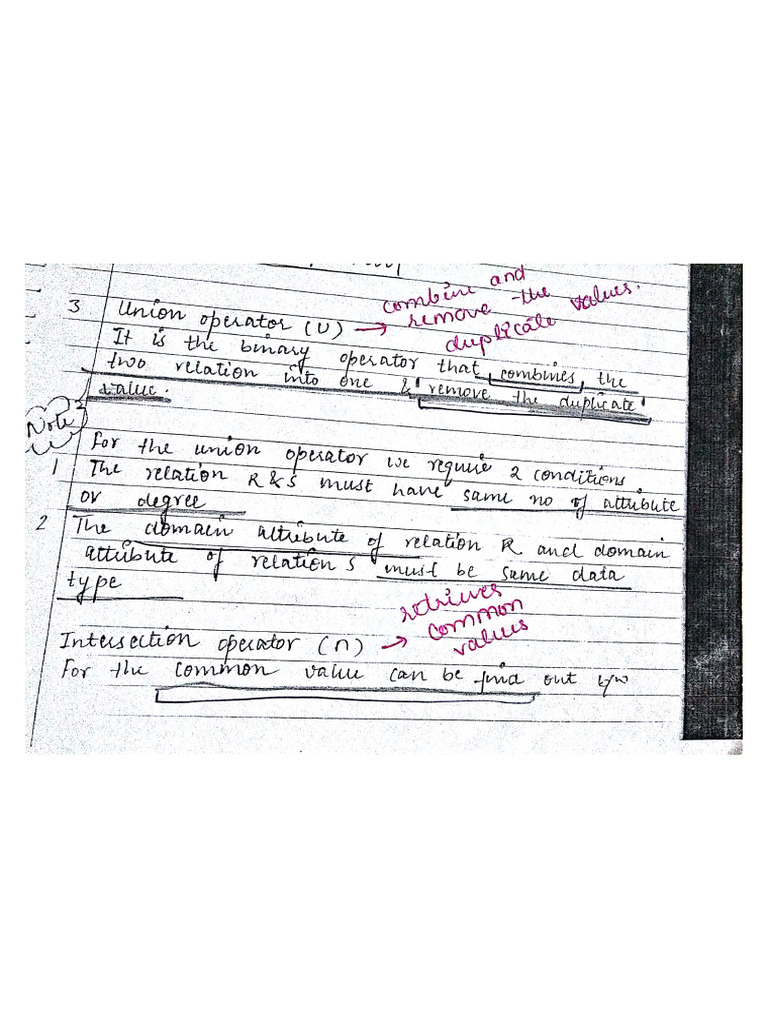 3 Union operator (U) → combine and
remove the
duplicate values.
It is the binary operator that combines the
two relation into one & remove the duplicate
value.
Note
For the union operator we require 2 conditions
1 The relation R & S must have same no of attribute
or degree
2 The domain attribute of relation R and domain
attribute of relation S must be same data
type
Intersection operator (∩) → retrieves
common
values
For the common value can be find out b/w